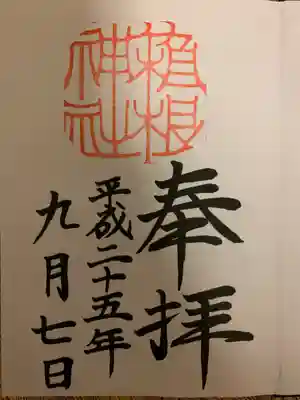 箱根
神社
奉拝
平成二十五年
九月七日